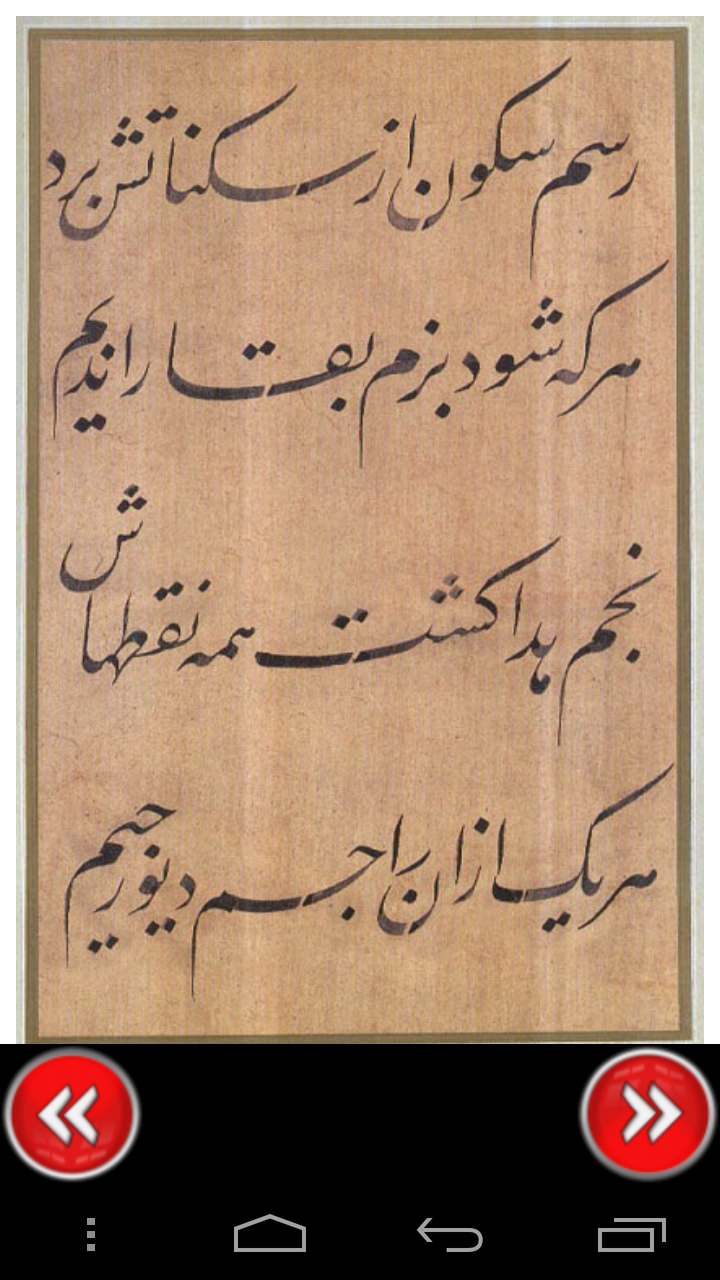 رسم سکون از سکناتش برد
هر که شود بزم بقا را ندیم
نجم هدا کشت همه نقطهاش
هر یک ازان راجم دیو رجیم